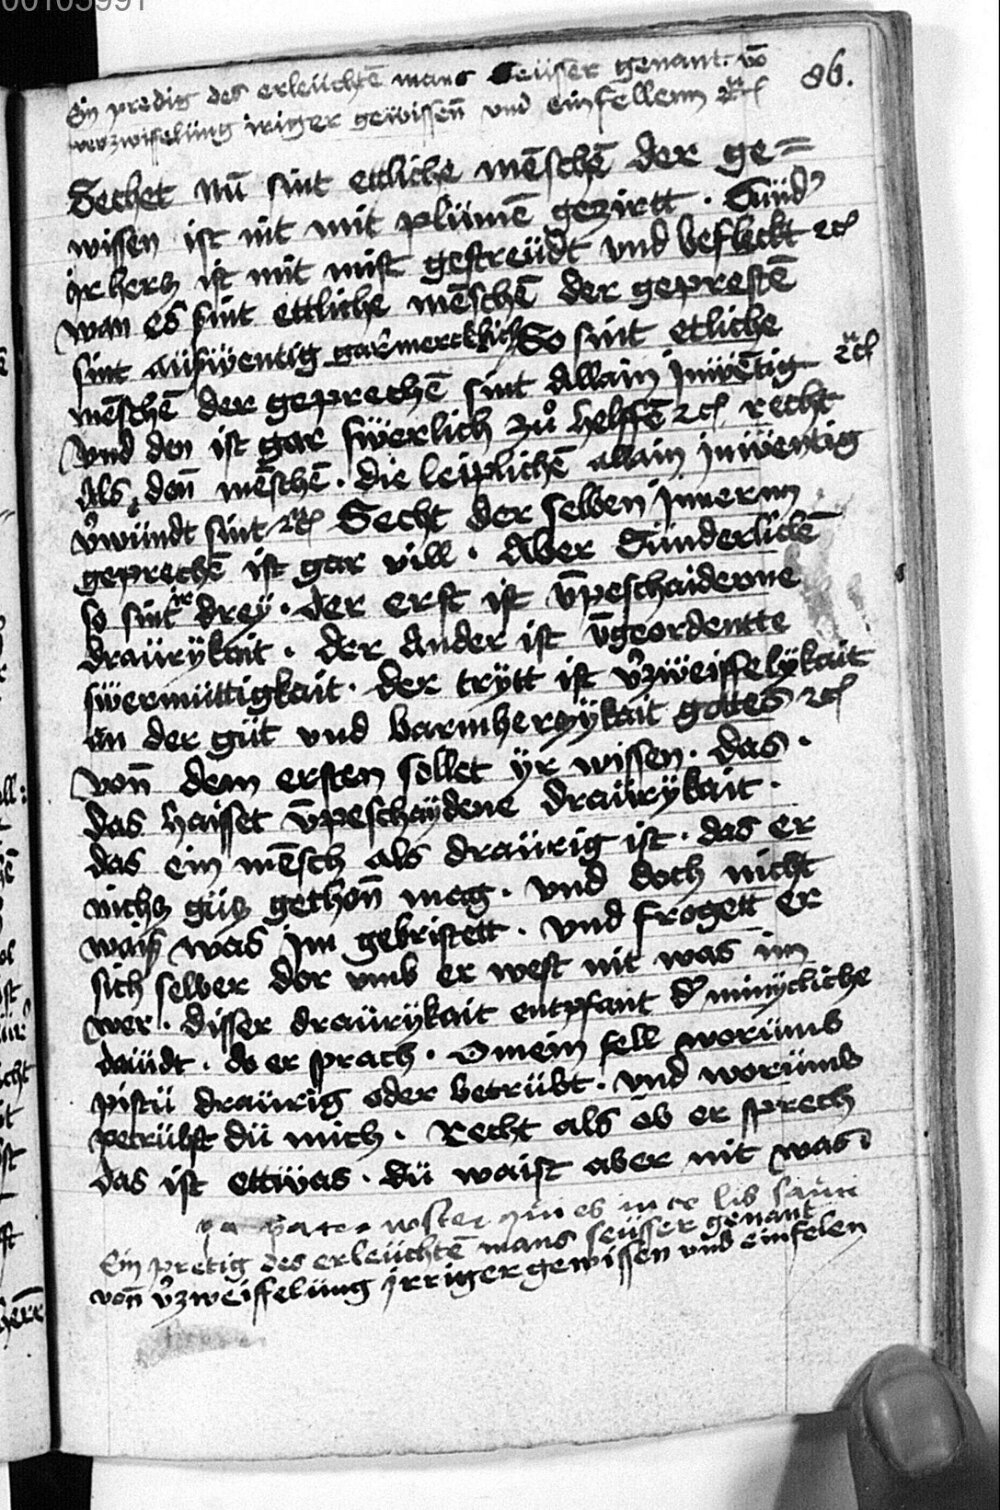 00103991
Ein predig des erleüchtē mans Seüser genant. vō
verzwiffelüng iriger gewissen̄ vnd einfellenn ꝛc̈
86.
Sechet nū sint ettliche mēschē der ge=
wissen ist nit mit plümē gezirtt . Sünd̉
ir hercz ist mit mist gestreüdt vnd befleckt ꝛc
wan es sint ettliche mēschē der geprestē
sint aüswentig gar mercklich So sint etliche
mēschē der geprechē sint allain jnwētig ꝛc̈
vnd den ist gar swerlich zů helffē ꝛc recht
als den̄ mēschē . die leiplichē allain jnwentig
v̉wundt sint ꝛc̈ Secht der selben jnnernn
geprechē ist gar vill . Aber Sünderlichē
so sint ir dreÿ . der erst ist v̄peschaidenne
draürÿkait . der ander ist v̄geordentte
swermüttigkait . der trÿtt ist v̉zweiffelÿkait
an der güt vnd barmherczÿkait gottes ꝛc
von̄ dem ersten sollet ÿr wissen . das .
das haisset v̄peschaÿdene draürÿkait .
das ein mēsch als draürig ist . das er
nichcz gücz gethon̄ mag . vnd doch nicht
waiß was jm gebristett . vnd frogett er
sich selber dor vmb er west nit was im
wer . disser draürÿkait entpfant d̉ minÿckliche
daüdt . do er sprach . O mein sell worümb
pistü draürig oder betrübt . vnd worümb
petrübst dü mich . Recht als ob er sprech
das ist ettwas . dü waist aber nit was
pater noster qui es in ce lis
Ein pretig des erleüchtē mans seüsser genant
von̄ v̉zweiffelüng jrriger gewissen vnd einfelen